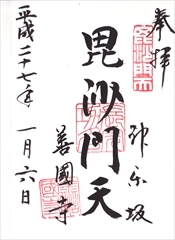 奉拝
神楽坂
毘沙門天
善國寺
平成二十七年
一月六日